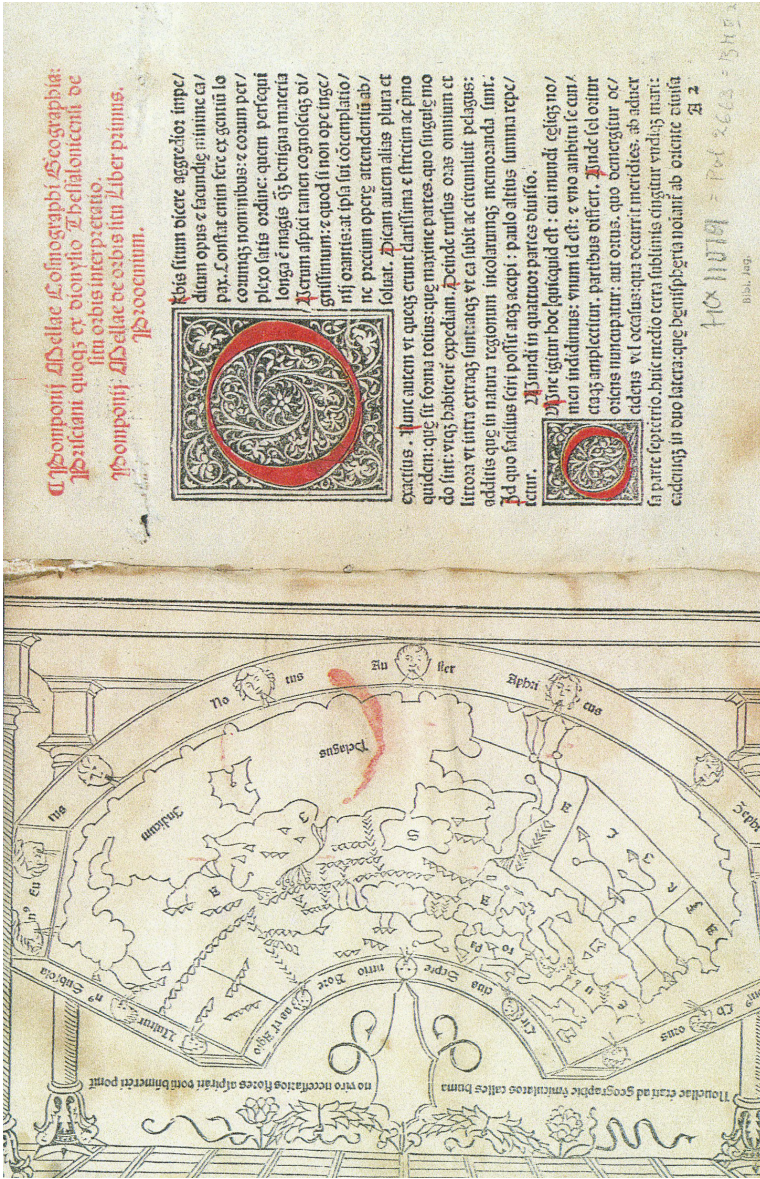 ¶Pomponij Mellae Cosmographi Geographia:
Prisciani quoqꝫ ex dionysio Thessalonicensi de
situ orbis interpretatio.
Pomponij Mellae de orbis situ Liber primus.
Prooemium.
ORbis situm dicere aggredior impe/
ditum opus ⁊ facundię minime ca/
pax. Constat enim fere ex gentiũ lo
corumqꝫ nominibus: ⁊ eorum per/
plexo satis ordine: quem persequi
longa ẽ magis qꝫ benigna materia
Verum aspici tamen cognosciqꝫ di/
gnissimum: ⁊ quod si non ope inge/
nij orantis: at ipsa sui cõtemplatio/
ne precium operę attendentiũ ab/
soluat. Dicam autem alias plura et
exactius. Nunc autem vt quęqꝫ erunt clarissima ⁊ strictim ac p̃mo
quidem: quę sit forma totius: quę maxime partes. quo singulę mo
do sint: vtqꝫ habitent̃ expediam. Deinde rursus oras omnium et
littora vt intra extraqꝫ sunt: atqꝫ vt ea subit ac circumluit pelagus:
additis quę in natura regionum incolarumqꝫ memoranda sunt.
Id quo facilius sciri possit atqꝫ accipi: paulo altius summa repe/
tetur. Mundi in quattuor partes diuisio.
OMne igitur hoc quicquid est: cui mundi cęliqꝫ no/
men indidimus: vnum id est: ⁊ vno ambitu se cun/
ctaqꝫ amplectitur. partibus differt. Vnde sol oritur
oriens nuncupatur: aut ortus. quo demergitur oc/
cidens vel occasus: qua decurrit meridies. ab aduer
sa parte septētrio. huic medio terra sublimis cingitur vndiqꝫ mari:
eademqꝫ in duo latera: quę hęmisphęria noiant̃ ab oriente diuisa
A 2
HC 11019 = Pol 2663
Bibl. Jag.
Nouellae etati ad geographie ṽmiculatos calles huma
no viro necessarios flores aspirãti votũ bñmerẽti ponit̃
Vultur
nº
Subsola
nº
Eu
rus
No
tus
Au
ster
Aphri
cus
Zephi
Cho
rus
Cir
cius
Septe
ntrio
Bore
as vl Aqlo
Indicum
Pelagus